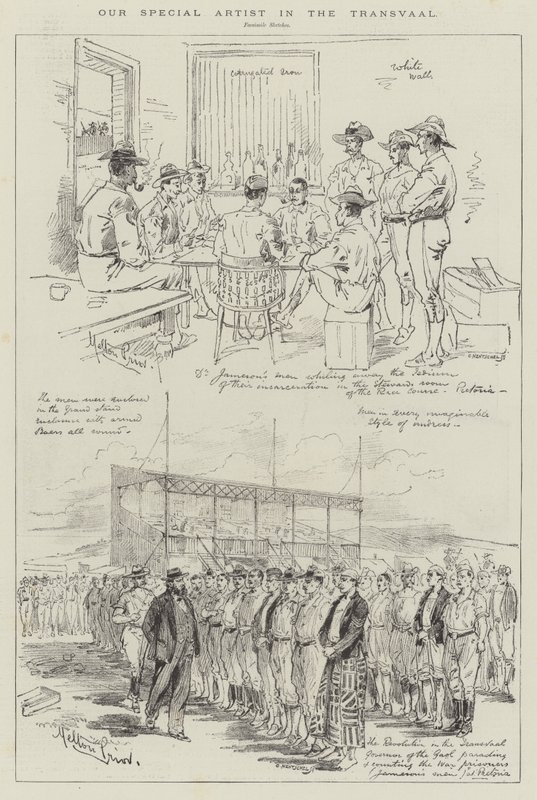 OUR SPECIAL ARTIST IN THE TRANSVAAL.
Facsimile Sketches.
Corrugated Iron
White
Walls
Melton Prior.
C. HENTSCHEL
Dr. Jameson's men whiling away the tedium
of their incarceration in the Stewards room
of the Race Course - Pretoria -
The men were enclosed
in the Grand Stand
enclosure with armed
Boers all round -
Men in every imaginable
style of undress -
Melton Prior.
C. HENTSCHEL
The Revolution in the Transvaal
Governor of the Gaol parading
& counting the War prisoners
Jameson's men / at Pretoria